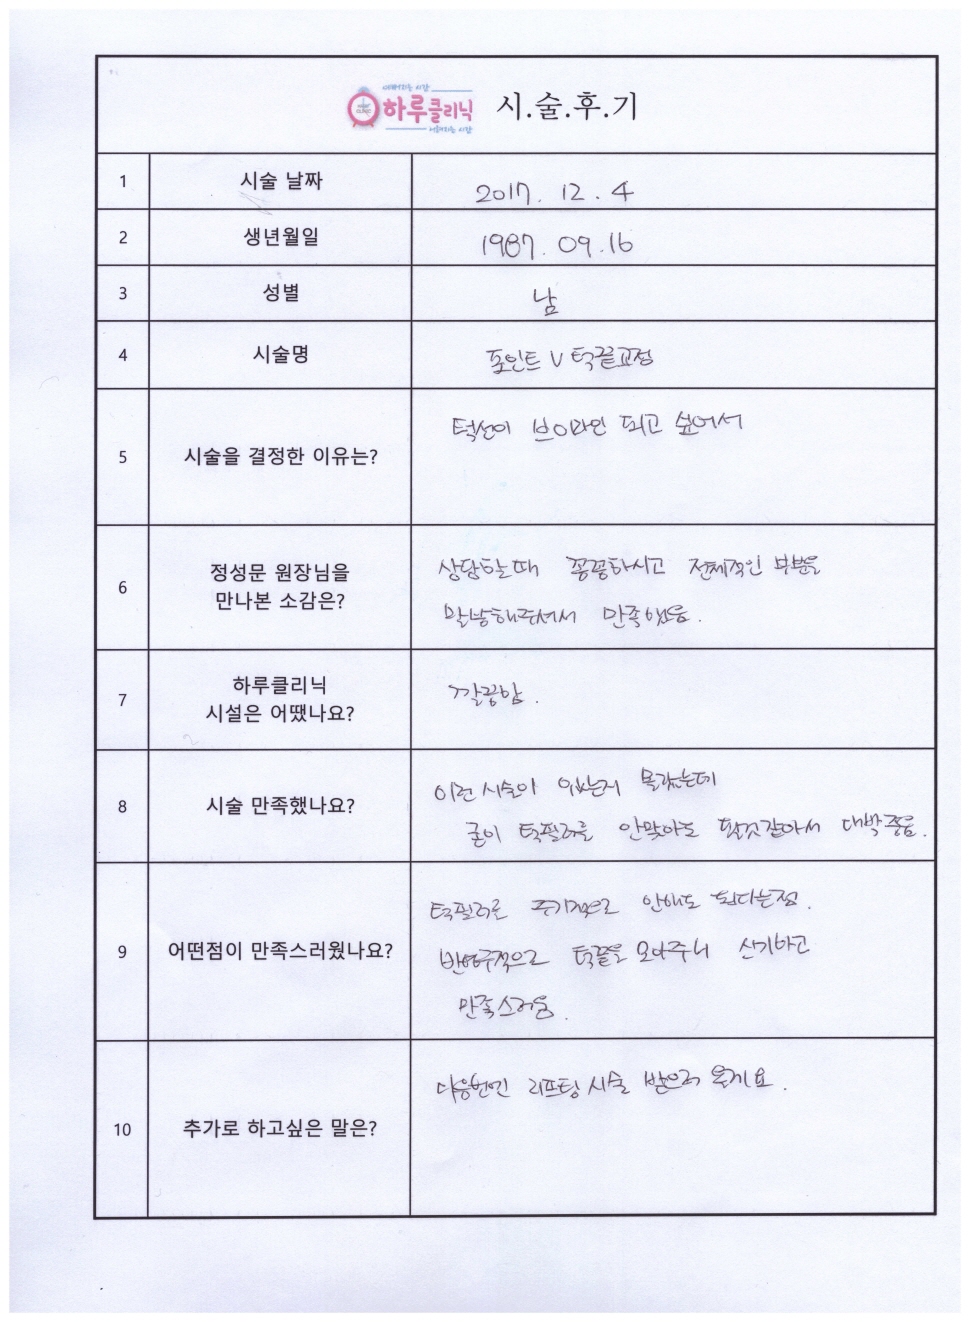 예뻐지는 시간
하루클리닉
어려지는 시간
시.술.후.기
1 시술 날짜 2017. 12. 4
2 생년월일 1987. 09. 16
3 성별 남
4 시술명 포인트 V 턱끝교정
5 시술을 결정한 이유는? 턱선이 브이라인 되고 싶어서
6 정성문 원장님을
만나본 소감은?
상담할때 꼼꼼하시고 전체적인 부분을
말씀해주셔서 만족했음.
7 하루클리닉
시설은 어땠나요?
깔끔함.
8 시술 만족했나요?
이런 시술이 있는지 몰랐는데
굳이 턱필러를 안맞아도 될것같아서 대박좋음.
9 어떤점이 만족스러웠나요?
턱필러를 주기적으로 안해도 된다는점.
반영구적으로 턱끝을 모아주니 신기하고
만족스러움.
10 추가로 하고싶은 말은?
다음번엔 리프팅 시술 받으러 올게요.